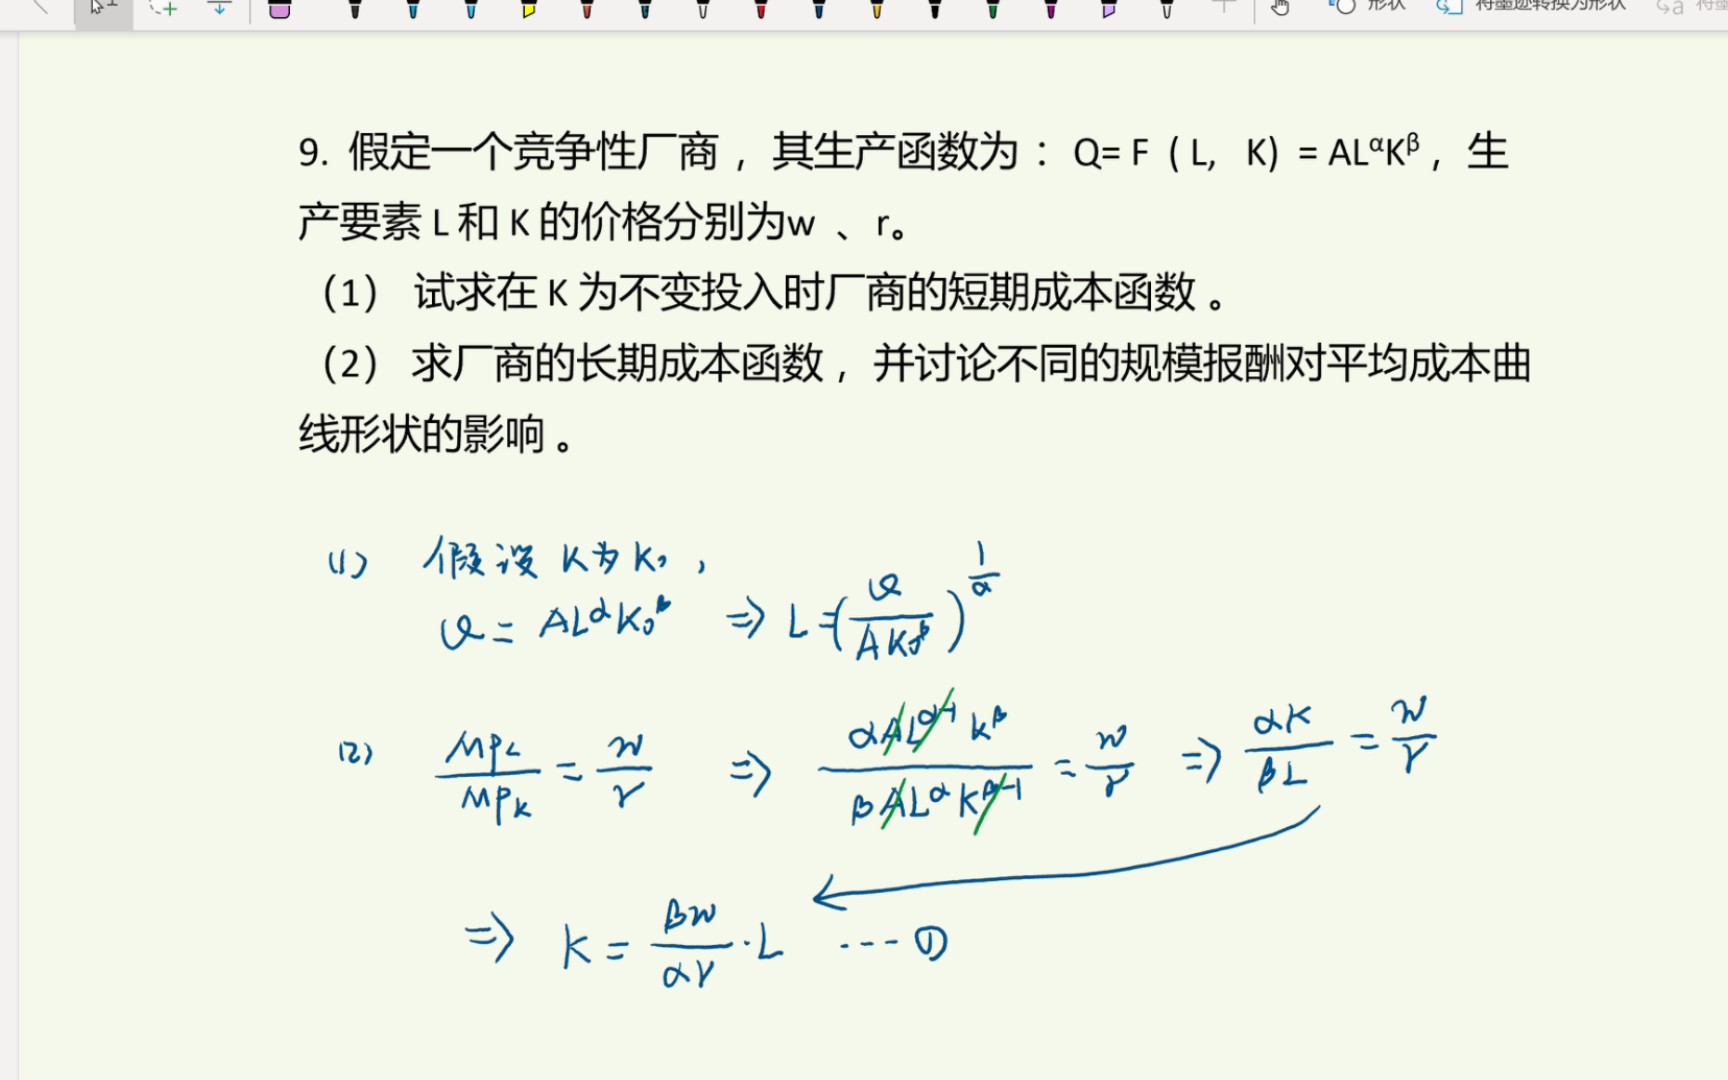 形状 将墨迹转换为形状
9. 假定一个竞争性厂商，其生产函数为：Q= F（L, K）= ALᵅKᵝ，生
产要素 L 和 K 的价格分别为w 、r。
（1） 试求在 K 为不变投入时厂商的短期成本函数 。
（2） 求厂商的长期成本函数，并讨论不同的规模报酬对平均成本曲
线形状的影响 。
(1) 假设 K为 K₀ ,
Q = ALᵅK₀ᵝ ⇒ L=(Q/AK₀ᵝ)^(1/α)
(2) MP_L/MP_K = w/r ⇒ αALᵅ⁻¹Kᵝ/βALᵅKᵝ⁻¹ = w/r ⇒ αK/βL = w/r
⇒ K = βw/αr · L ---- ①